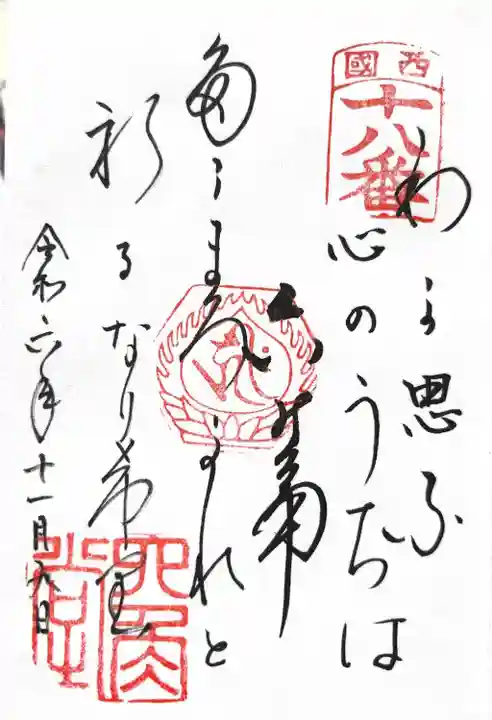 西國
十八番
わか思ふ
心のうちは
六の角
たゝまろかれと
祈るなり希里
令和六年十一月九日
六角堂